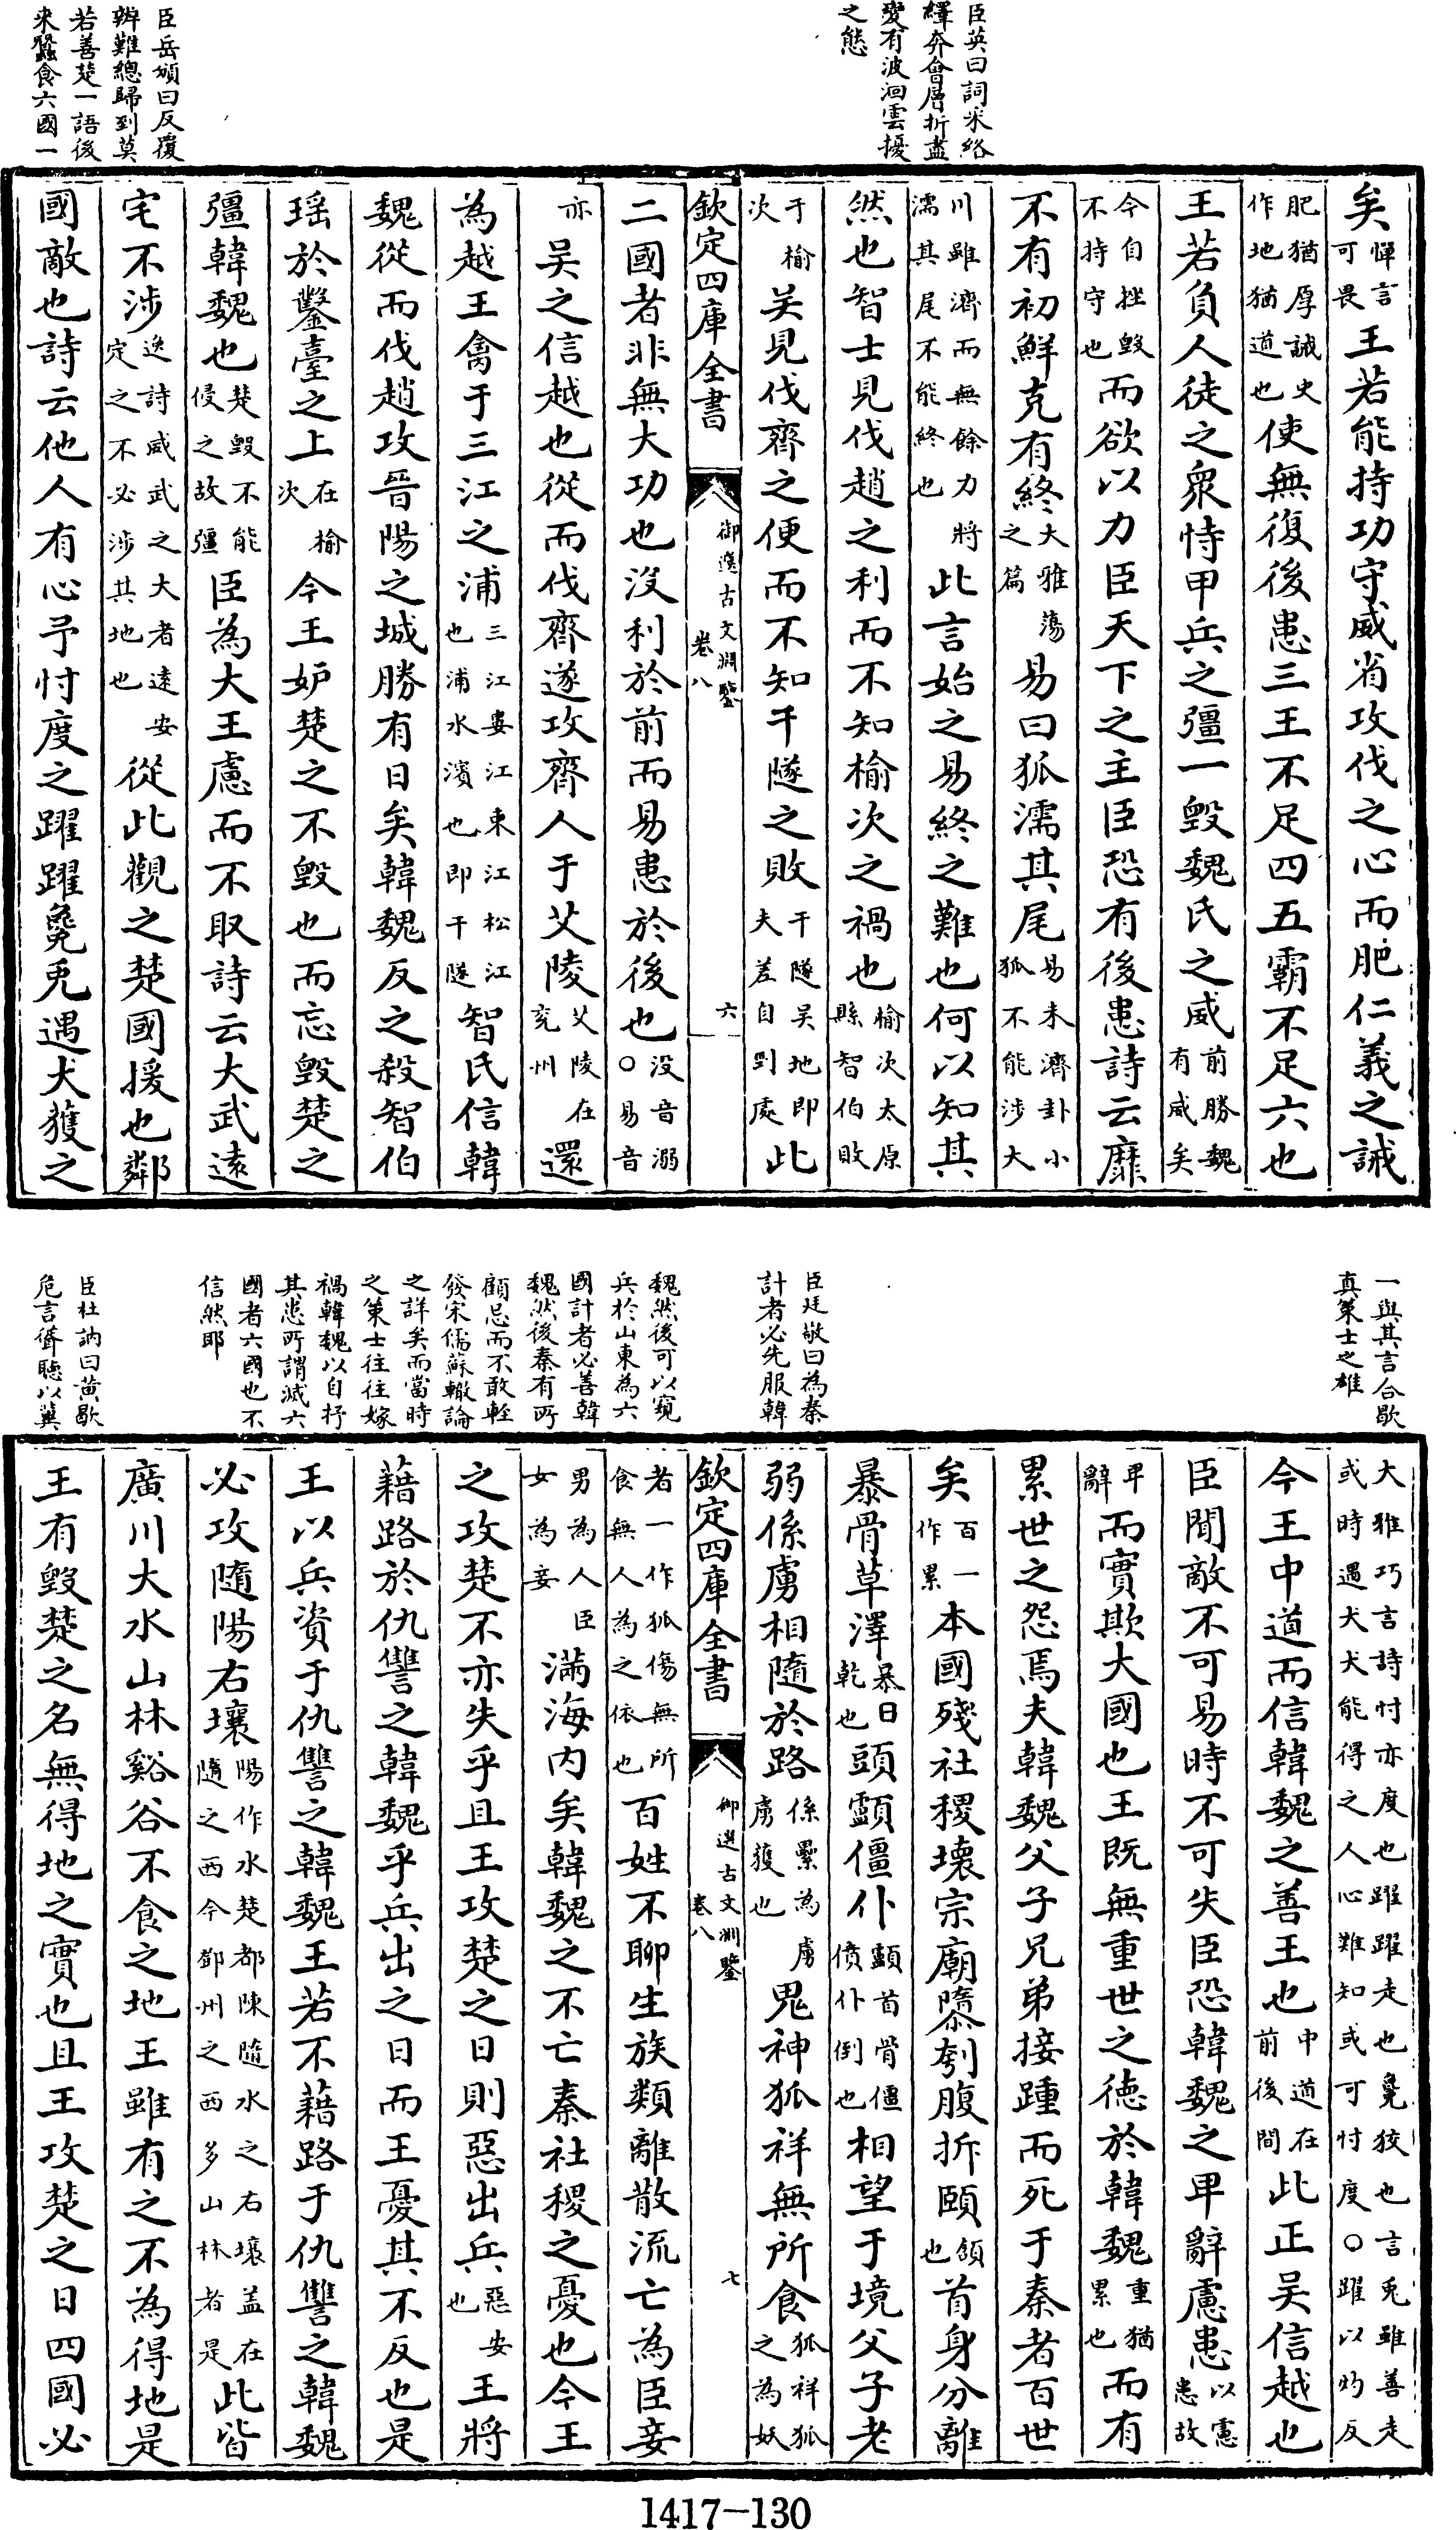 臣英曰詞采絡
繹奔會層折盡
變有波洄雲擾
之態
臣岳頒曰反覆
辨難總歸到莫
若善楚一語後
来蠶食六國一
矣憚言可畏王若能持功守威省攻伐之心而肥仁義之誡
肥猶厚誠史作地猶道也使無復後患三王不足四五霸不足六也
王若負人徒之衆恃甲兵之彊一毀魏氏之威前勝魏有威矣
今自挫毀不持守也而欲以力臣天下之主臣恐有後患詩云靡
不有初鮮克有終大雅蕩之篇易曰狐濡其尾易未濟卦小狐不能涉大
川雖濟而無餘力將濡其尾不能終也此言始之易終之難也何以知其
然也智士見伐趙之利而不知榆次之禍也榆次太原縣智伯敗
于榆次吴見伐齊之便而不知干隧之敗干隧吴地即夫差自剄處此
欽定四庫全書
御選古文淵鑒
卷八
六
二國者非無大功也没利於前而易患於後也没音溺○易音
亦吴之信越也從而伐齊遂攻齊人于艾陵艾陵在兖州還
為越王禽于三江之浦三江婁江東江松江也浦水濱也即干隧智氏信韓
魏從而伐趙攻晉陽之城勝有日矣韓魏反之殺智伯
瑶於鑿臺之上在榆次今王妒楚之不毀也而忘毀楚之
彊韓魏也楚毀不能侵之故彊臣為大王慮而不取詩云大武遠
宅不涉逸詩威武之大者遠安定之不必涉其地也從此觀之楚國援也鄰
國敵也詩云他人有心予忖度之躍躍毚兎遇犬獲之
一與其言合歇
真策士之雄
臣廷敬曰為秦
計者必先服韓
魏然後可以窺
兵於山東為六
國計者必善韓
魏然後秦有所
顧忌而不敢輕
發宋儒蘇轍論
之詳矣而當時
之策士往往嫁
禍韓魏以自抒
其患所謂滅六
國者六國也不
信然耶
臣杜訥曰黄歇
危言聳聽以冀
大雅巧言詩忖亦度也躍躍走也毚狡也言兎雖善走或時遇犬犬能得之人心難知或可忖度○躍以灼反
今王中道而信韓魏之善王也中道在前後間此正吴信越也
臣聞敵不可易時不可失臣恐韓魏之卑辭慮患以憲患故
卑辭而實欺大國也王既無重世之徳於韓魏重猶累也而有
累世之怨焉夫韓魏父子兄弟接踵而死于秦者百世
矣百一作累本國殘社稷壞宗廟隳刳腹折頤頷也首身分離
暴骨草澤暴日乾也頭顱僵仆顱首骨僵偾仆倒也相望于境父子老
弱係虜相隨於路係纍為虜虜獲也鬼神狐祥無所食狐祥狐之為妖
欽定四庫全書
御選古文淵鑒
卷八
七
者一作狐傷無所食無人為之依也百姓不聊生族類離散流亡為臣妾
男為人臣女為妾滿海内矣韓魏之不亡秦社稷之憂也今王
之攻楚不亦失乎且王攻楚之日則惡出兵惡安也王將
藉路於仇讐之韓魏乎兵出之日而王憂其不反也是
王以兵資于仇讐之韓魏王若不藉路于仇讐之韓魏
必攻隨陽右壤陽作水楚都陳隨水之右壤盖在隨之西今鄧州之西多山林者是此皆
廣川大水山林谿谷不食之地王雖有之不為得地是
王有毀楚之名無得地之實也且王攻楚之日四國必
1417-130